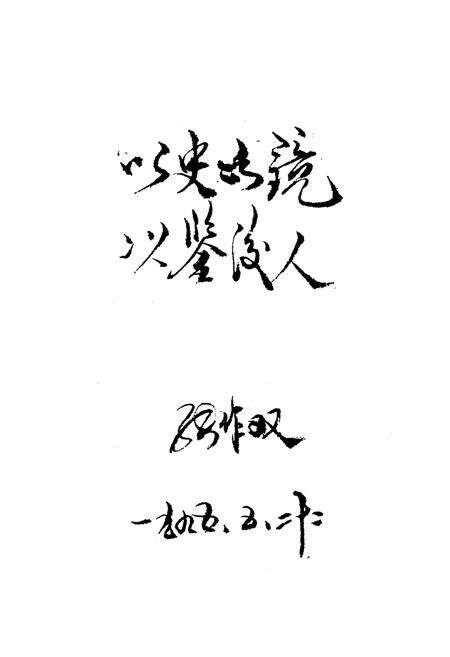 以史为镜
以鉴后人
张作双
一九九五、五、二十二